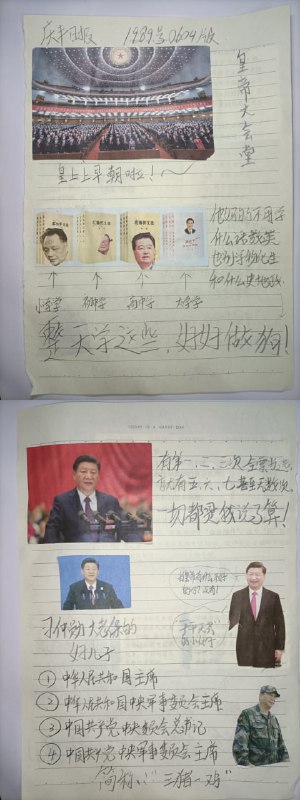 庆丰日报 1989号0604版
皇帝大会堂
皇上上早朝啦！～
他们的不用学
什么语数英
也别学物化生
和什么史地政
小学 初中 高中 大学
整天学这些,好好做狗!
TODAY IS A HAPPY DAY
有第一、二、三次全票当选,
就有五、六、七甚至无数次,
一切都是我说了算!
习仲勋大老保的
好儿子
① 中华人民共和国主席
② 中华人民共和国中央军事委员会主席
③ 中国共产党中央委员会总书记
④ 中国共产党中央军事委员会主席
简称:“三猪一鸡”